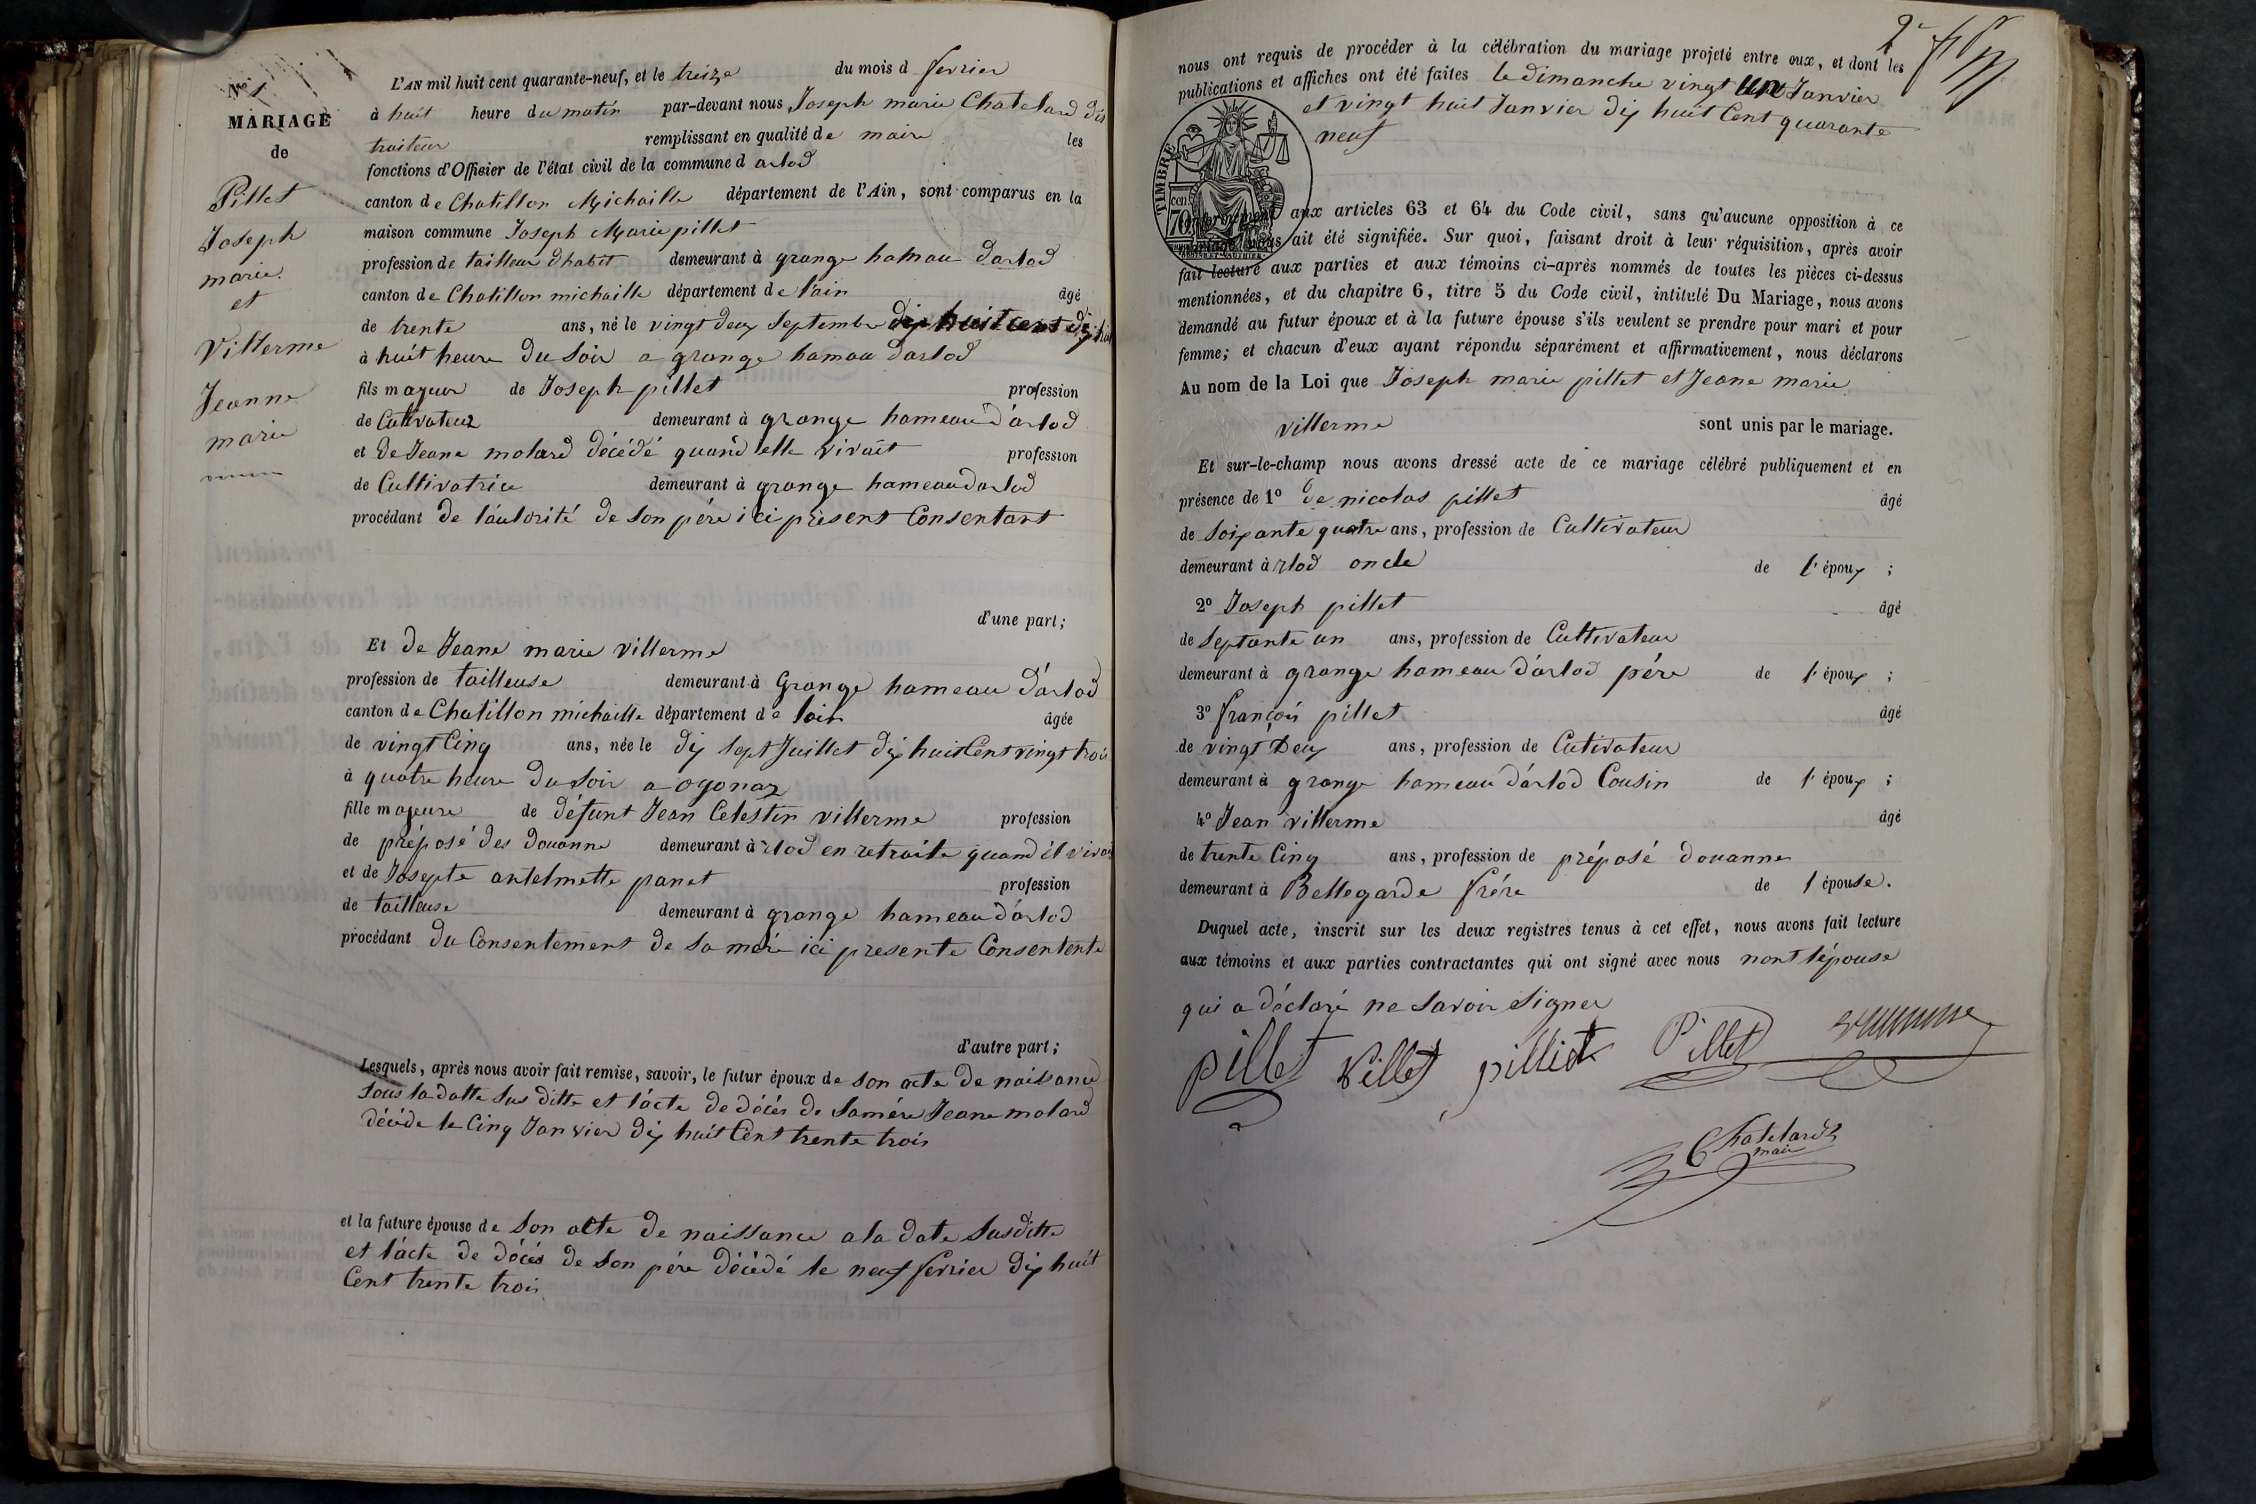 N° 1
MARIAGE
de
Pillet
Joseph
marie
et
Villerme
Jeanne
marie
L'AN mil huit cent quarante-neuf, et le treize du mois d fevrier
à huit heure du matin par-devant nous Joseph marie Chatelard dis
traiteur remplissant en qualité de maire les
fonctions d'Officier de l'état civil de la commune d arlod
canton de Chatillon Michaille département de l'Ain, sont comparus en la
maison commune Joseph Marie pillet
profession de tailleur dhabit demeurant à grange hamau darlod
canton de Chatillon michaille département de l'ain âgé
de trente ans, né le vingt deux Septembre dix huit cent dix huit
à huit heure du Soir a grange hamau darlod
fils majeur de Joseph pillet profession
de Cultivateur demeurant à grange hameau d'arlod
et de Jeane molard décédé quand elle vivait profession
de Cultivatrice demeurant à grange hameau darlod
procédant de l'autorité de Son père ici présent Consentant
d'une part;
Et de Jeane marie villerme
profession de tailleuse demeurant à Grange hameau d'arlod
canton de Chatillon michaille département de lain âgée
de vingt Cinq ans, née le dix Sept Juillet dix huit Cent vingt trois
à quatre heure du Soir a oyonaz
fille majeure de défunt Jean Celestin villerme profession
de préposé des douanne demeurant à rlod en retraite quand il vivai
et de Josepte antelmette panet profession
de tailleuse demeurant à grange hameau d'arlod
procédant du Consentement de Sa mère ici presente Consentente
d'autre part;
Lesquels, après nous avoir fait remise, savoir, le futur époux de son acte de naissance
Sous la datte Sus ditte et l'acte de décés de Samére Jeane molard
décédé le Cinq Janvier dix huit Cent trente trois
et la future épouse de Son acte de naissance a la date Susditte
et l'acte de décés de Son père décédé le neuf fevrier dix huit
Cent trente trois
2e
nous ont requis de procéder à la célébration du mariage projeté entre eux, et dont les
publications et affiches ont été faites le dimanche vingt un Janvier
et vingt huit Janvier dix huit Cent quarante
neuf
TIMBRE
70 cen
Conformément aux articles 63 et 64 du Code civil, sans qu'aucune opposition à ce
mariage nous ait été signifiée. Sur quoi, faisant droit à leur réquisition, après avoir
fait lecture aux parties et aux témoins ci-après nommés de toutes les pièces ci-dessus
mentionnées, et du chapitre 6, titre 5 du Code civil, intitulé Du Mariage, nous avons
demandé au futur époux et à la future épouse s'ils veulent se prendre pour mari et pour
femme; et chacun d'eux ayant répondu séparément et affirmativement, nous déclarons
Au nom de la Loi que Joseph marie pillet et Jeane marie
villerme sont unis par le mariage.
Et sur-le-champ nous avons dressé acte de ce mariage célébré publiquement et en
présence de 1° de nicolas pillet âgé
de Soixante quatre ans, profession de Cultivateur
demeurant à rlod oncle de l'époux;
2° Joseph pillet âgé
de Septante un ans, profession de Cultivateur
demeurant à grange hameau d'arlod pére de l'époux;
3° françois pillet âgé
de vingt Deux ans, profession de Cutivateur
demeurant à grange hameau d'arlod Cousin de l'époux;
4° Jean villerme âgé
de trente Cinq ans, profession de préposé douanne
demeurant à Bellegarde frére de l'épouse.
Duquel acte, inscrit sur les deux registres tenus à cet effet, nous avons fait lecture
aux témoins et aux parties contractantes qui ont signé avec nous nont l'épouse
qui a déclaré ne Savoir Signer
pillet Pillet pilliet Pillet
Chatelard
maire